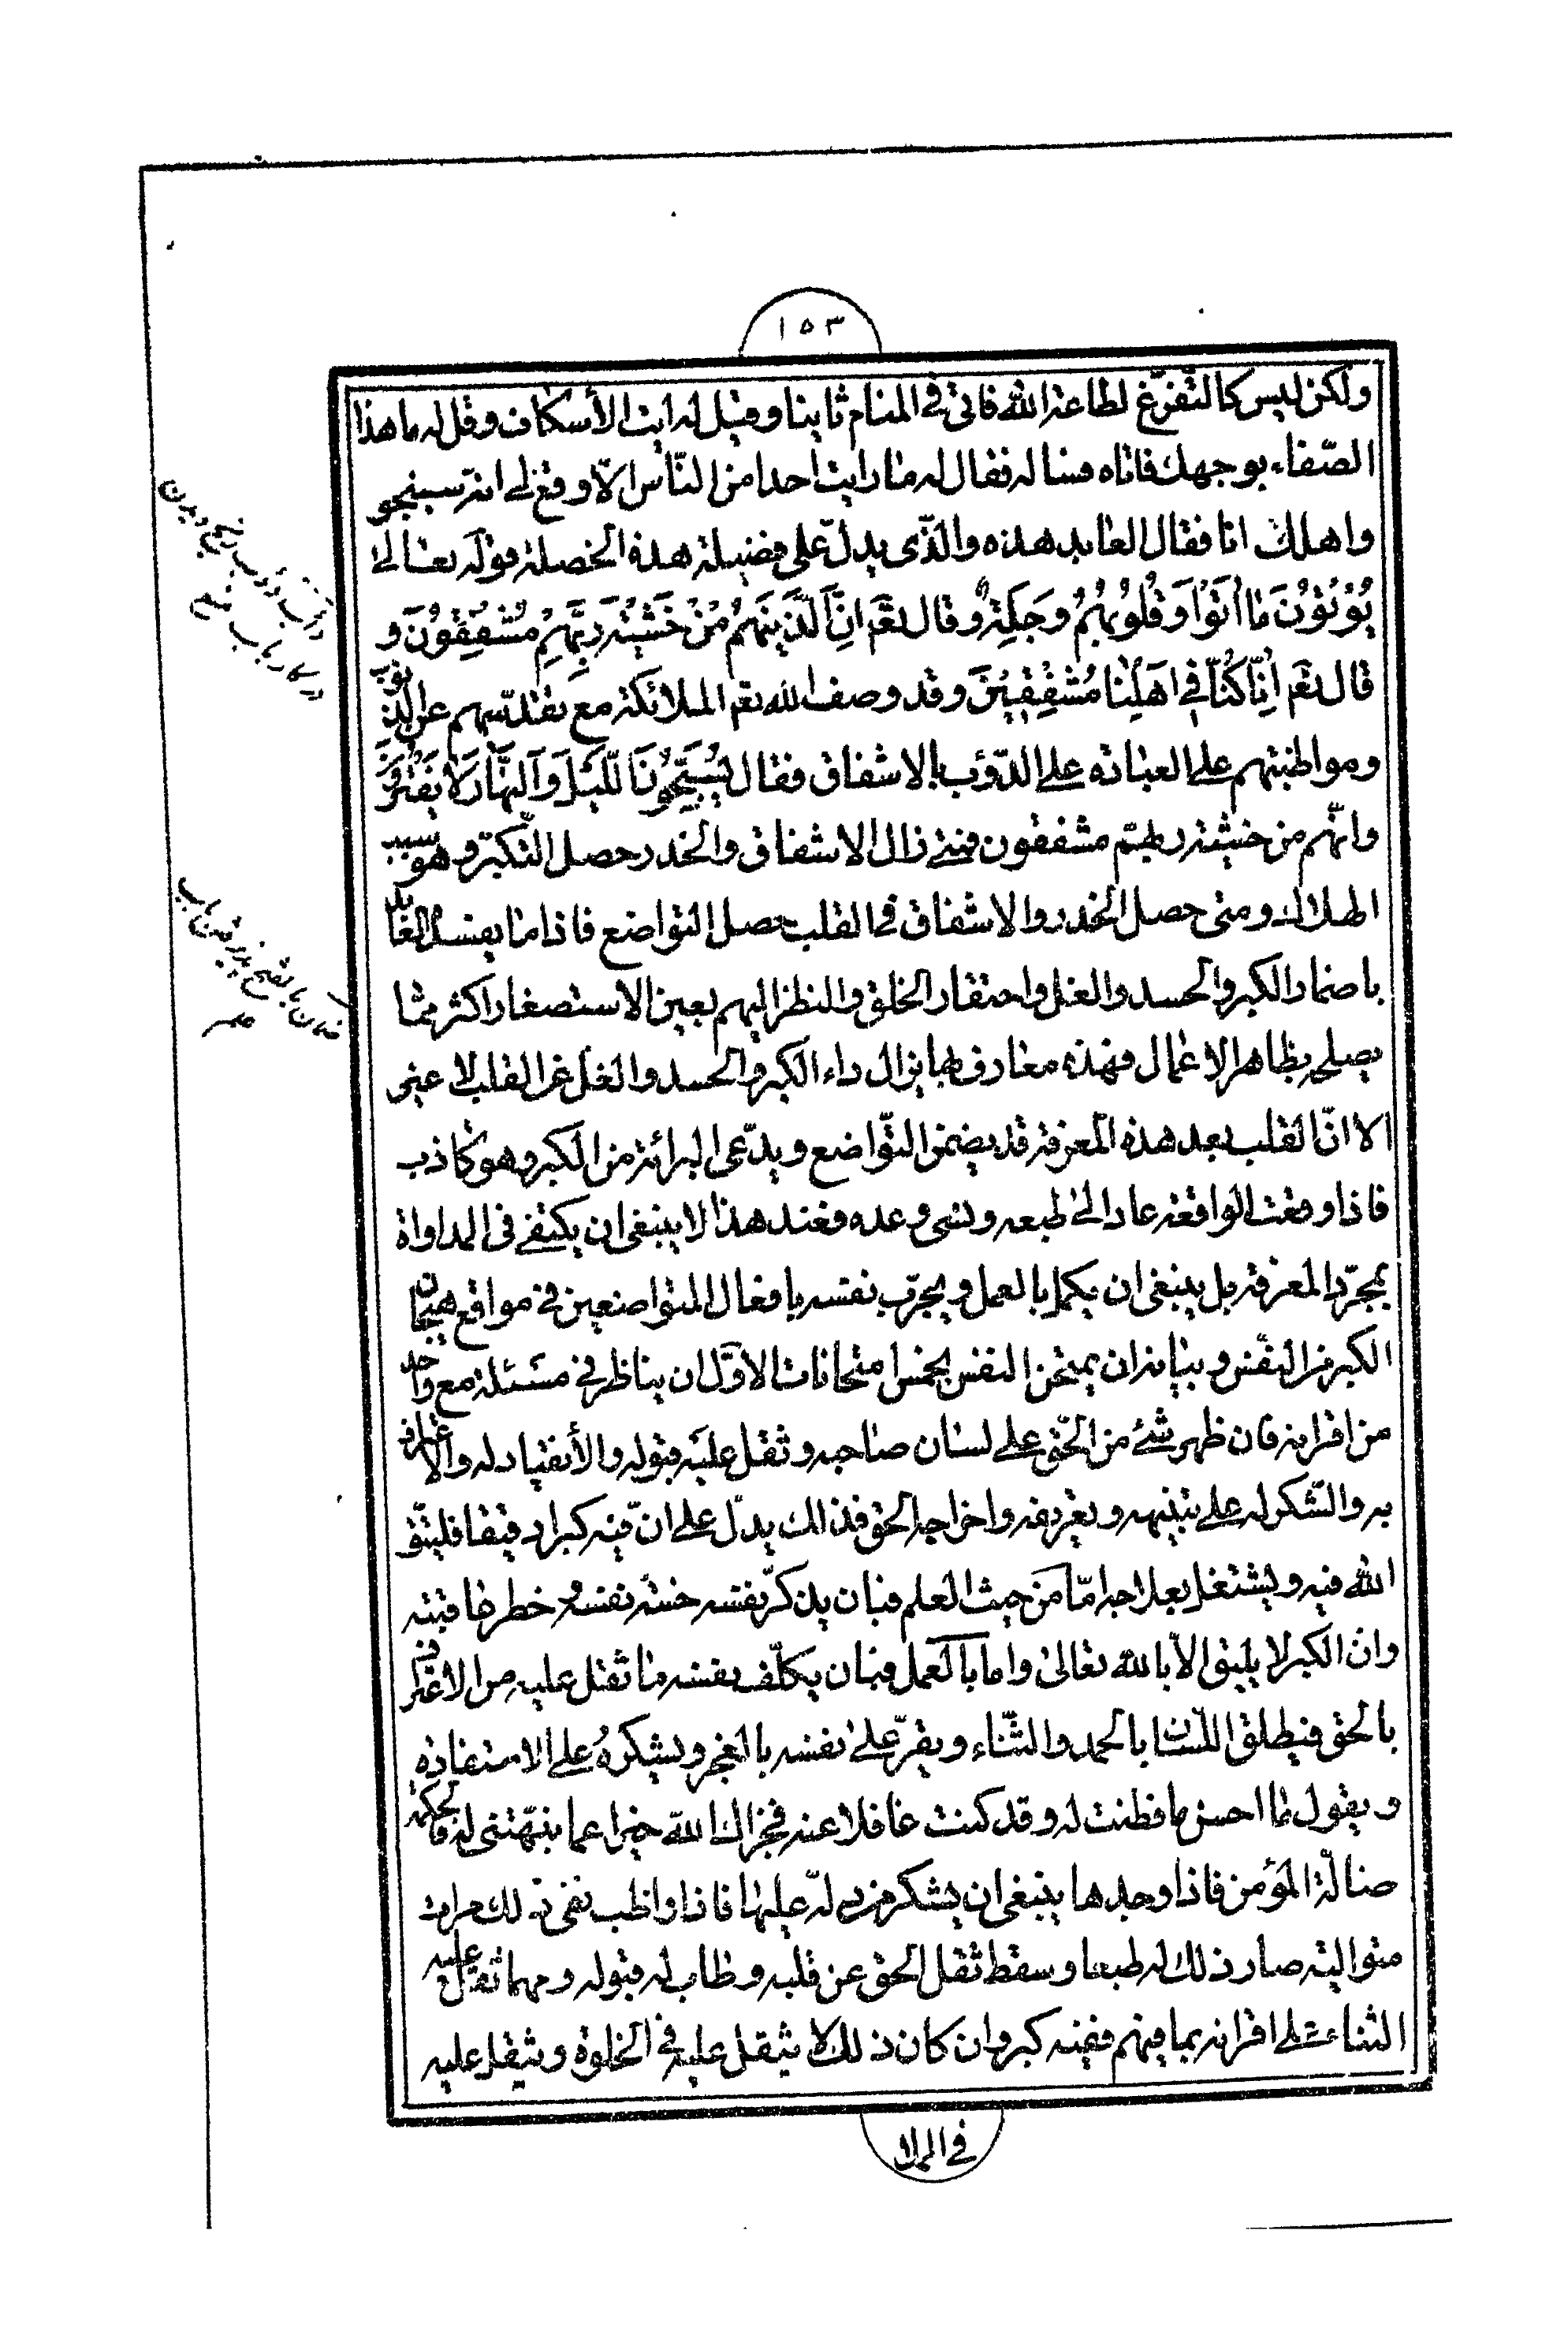 ١٥٣
ولكن ليس كالتفرّغ لطاعة الله فاتى فى المنام ثانيا وقيل له ايت الأسكاف وقل له ما هذا
الصّفاء بوجهك فاتاه فساله فقال له ما رايت احدا من النّاس الّا وقع لى انه سينجو
واهلك انا فقال العابد هذه والّذى يدلّ على فضيلة هذه الخصلة قوله تعالى
يُؤتُونَ مَا اٰتَوْا وَقُلُوبُهُمْ وَجِلَةٌ وقال تعَ اِنَّ الَّذينَ هُمْ مِنْ خَشْيَةِ رَبِّهِمْ مُشْفِقُونَ و
قال تعَ اِنّا كُنّا فى اَهْلِنٰا مُشْفِقينَ وقد وصف الله تعَ الملائكة مع تقدّسهم عن الذنوب
ومواظبتهم على العبادة على الدّؤب بالاشفاق فقال يُسَبِّحُونَ اللَّيْلَ وَالنَّهٰارَ لاٰ يَفْتُرُونَ
وانّهم من خشية ربهم مشفقون فمتى زال الاشفاق والحذر حصل التّكبّر وهو سبب
الهلاك ومتى حصل الحذر والاشفاق فى القلب حصل التواضع فاذا ما يفسد العابد
باضمار الكبر والحسد والغل واحتقار الخلق والنظر اليهم بعين الاستصغار اكثر ممّا
يصلح بظاهر الاعمال فهذه معارف بها يزال داء الكبر والحسد والغل عن القلب لا غير
الا انّ القلب بعد هذه المعرفة قد يضمن التّواضع ويدّعى البرائة من الكبر وهو كاذب
فاذا وقعت الواقعة عاد الى طبعه ونسى وعده فعند هذا لا ينبغى ان يكتفى فى المداواة
بمجرّد المعرفة بل ينبغى ان يكمل بالعمل ويجرّب نفسه بافعال المتواضعين فى مواقع هيجان
الكبر من النّفس وبيانه ان يمتحن النفس بخمس امتحانات الاوّل ان يناظر فى مسئلة مع واحد
من اقرانه فان ظهر شئ من الحّق على لسان صاحبه وثقل عليه قبوله والأنقياد له والاعتراف
به والشّكر له على تنبيهه وتعريفه واخراجه الحق فذالك يدلّ على انّ فيه كبرا دقيقا فليتّق
الله فيه ويشتغل بعلاجه امّا من حيث العلم فبان يذكّر نفسه خسّة نفسه وخطر عاقبته
وان الكبر لا يليق الّا بالله تعالى واما بالعمل فبان يكلّف نفسه ما ثقل عليه من الاعتراف
بالحق فيطلق اللّسان بالحمد والثّناء ويقرّ على نفسه بالعجز ويشكره على الاستفادة
ويقول ما احسن ما فطنت له وقد كنت غافلا عنه فجزاك الله خيرا عما نبّهتنى له فالحكمة
ضالّة المؤمن فاذا وجدها ينبغى ان يشكر من دله عليها فاذا واظب نفسه ذلك مرات
متوالية صار ذلك له طبعا وسقط ثقل الحق عن قلبه وطاب له قبوله ومهما ثقل عليه
الثناء على اقرانه بما فيهم ففيه كبر وان كان ذلك لا يثقل عليه فى الخلوة ويثقل عليه
فى الملا